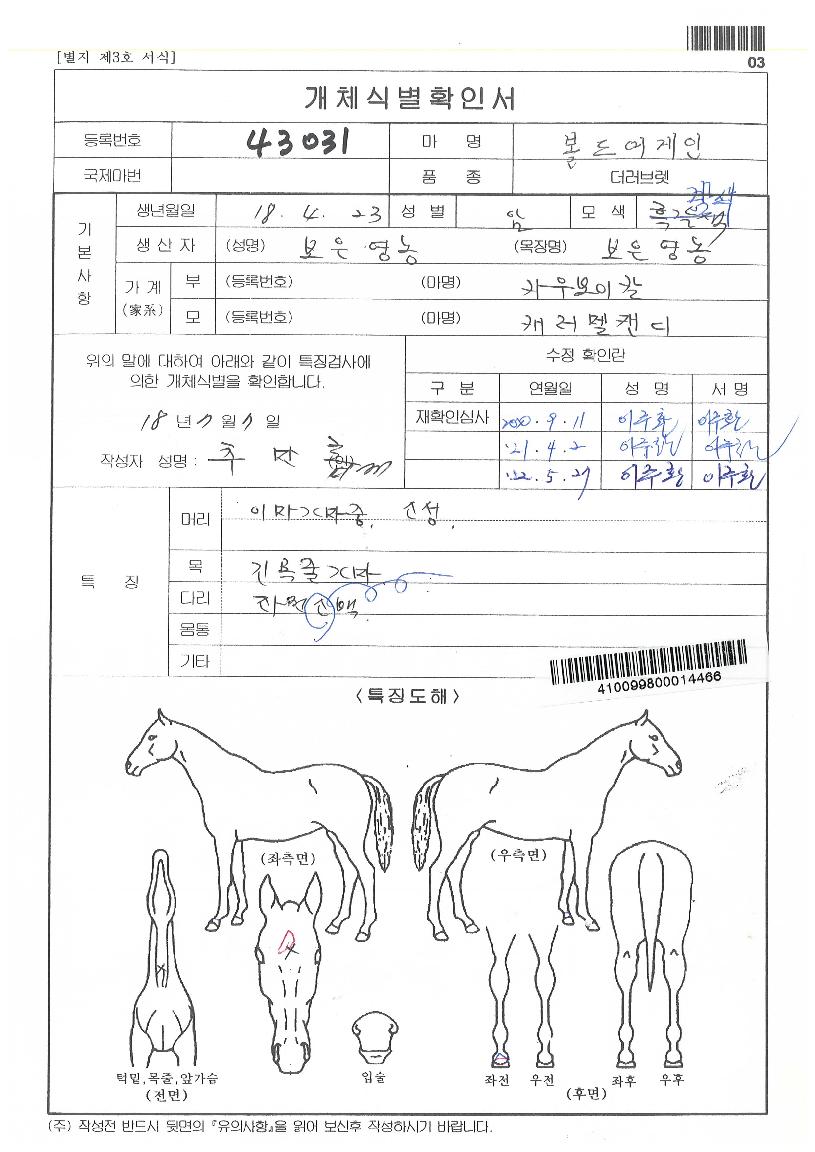 [별지 제3호 서식]
03
개체식별확인서
등록번호 43031 마 명 볼드어게인
국제마번 품 종 더러브렛
기본사항
생년월일 18. 4. 23 성 별 암 모 색
생 산 자 (성명) 보은영농 (목장명) 보은영농
가 계 (家系) 부 (등록번호) (마명) 카우보이칼
모 (등록번호) (마명) 캐러멜캔디
위의 말에 대하여 아래와 같이 특징검사에
의한 개체식별을 확인합니다.
18 년 7 월 7 일
작성자 성명 :
수정 확인란
구 분 연월일 성 명 서 명
재확인심사 2020. 9. 11 이주환 이주환
'21. 4. 2 이주환 이주환
'22. 5. 27 이주환 이주환
특 징
머리
목
다리
몸통
기타
410099800014466
<특징도해>
(좌측면) (우측면)
턱밑,목줄,앞가슴
(전면)
입술
좌전 우전
(후면)
좌후 우후
(주) 작성전 반드시 뒷면의 『유의사항』을 읽어 보신후 작성하시기 바랍니다.